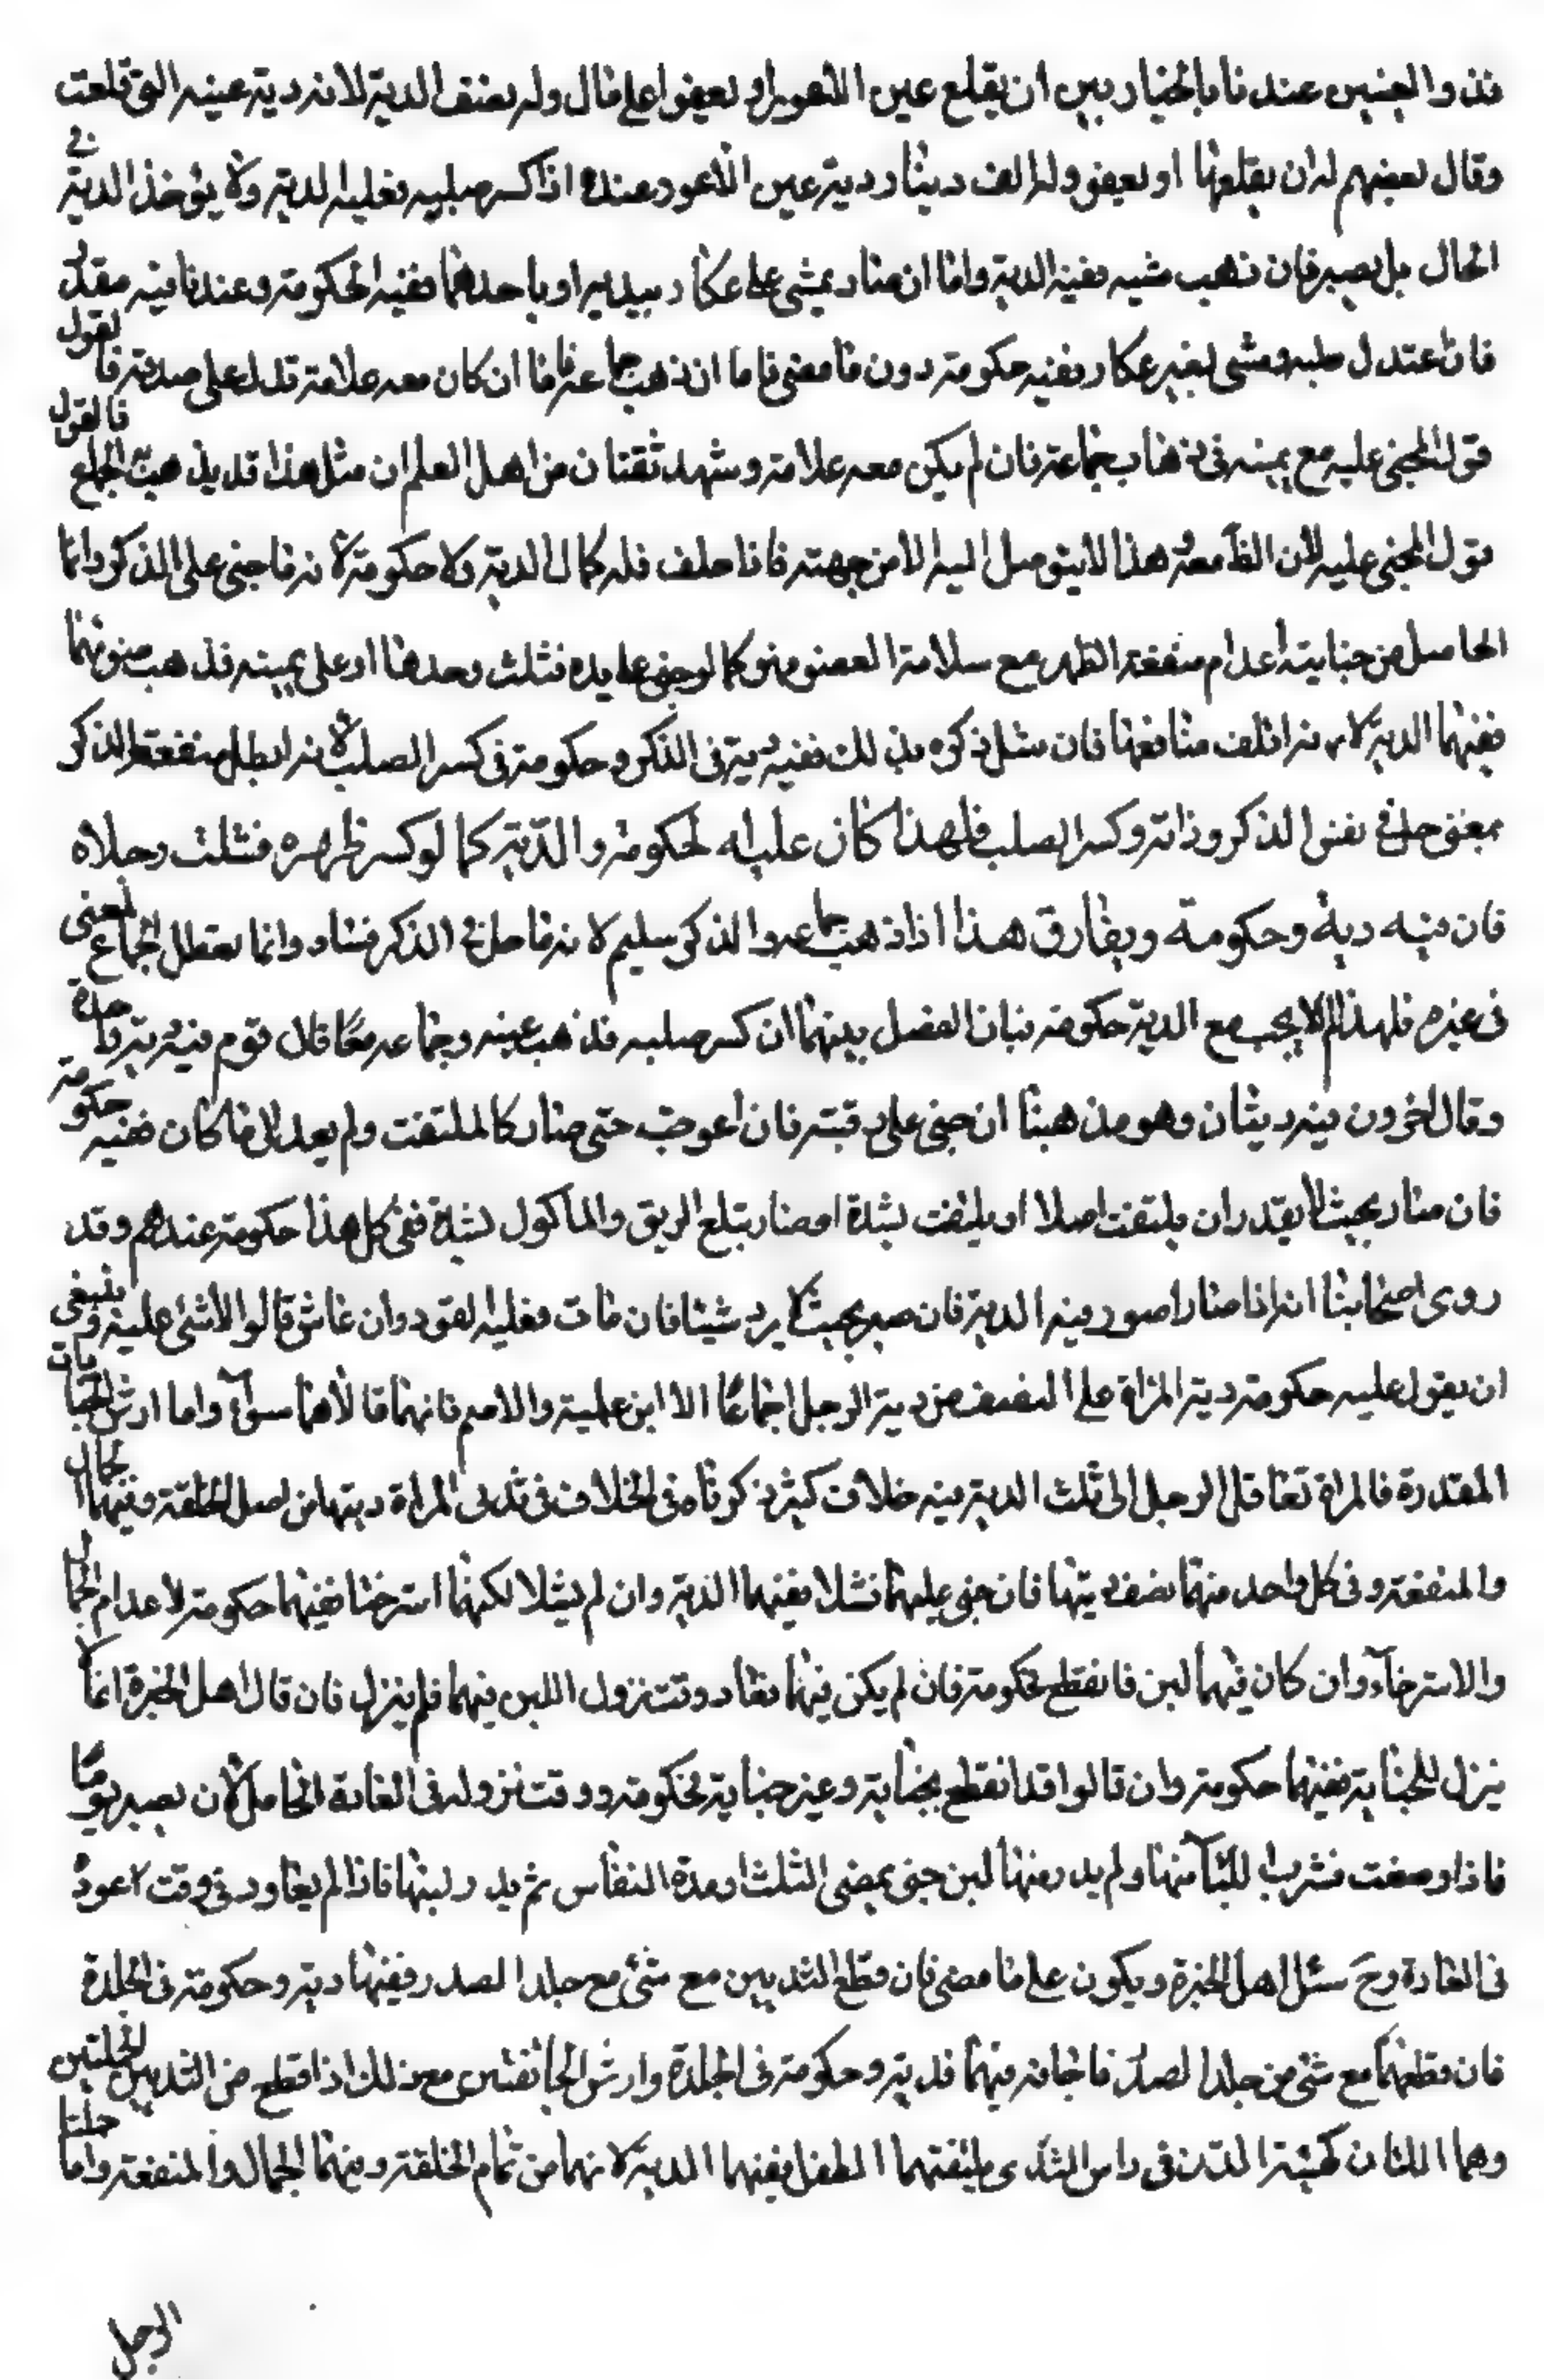 فذو العينين عندنا بالخيار بين ان يقلع عين الاعور او يعفوا على مال وله نصف الدية لانه دية عينه التي قلعت
وقال بعضهم له ان يقلعها او يعفو وله الف دينار دية عين الاعور عنده اذا كسر صلبه فعليه الدية ولا يؤخذ الدية في
الحال بل يصبر فان ذهب مشيه ففيه الدية واما ان صار يمشي على عكاز بيديه او باحدهما ففيه الحكومة وعندنا فيه مقدر
فان اعتدل صلبه ومشى بغير عكاز ففيه حكومة دون ما مضى فاما ان ذهب جماعه فاما ان كان معه علامة تدل على صدقه فالقول
قول المجنى عليه مع يمينه في ذهاب جماعه فان لم يكن معه علامة وشهد ثقتان من اهل العلم ان مثل هذا قد يذهب الجماع فالقول
قول المجنى عليه لان الظ معه هذا لا يتوصل اليه الا من جهته فاذا حلف فله كمال الدية ولا حكومة لانه ما جنى على الذكر وانما
الحاصل من جنايته اعدام منفعة الظهر مع سلامة العضو فهو كما لو جنى على يده فشلت وحدها او على عينيه فذهب ضوئهما
ففيهما الدية لانه اتلف منافعها فان شل ذكره بذلك ففيه دية في الذكر وحكومة في كسر الصلب لانه ابطل منفعة الذكر
بمعنى حل في نفس الذكر وذاته وكسر الصلب فلهذا كان عليه الحكومة والدية كما لو كسر ظهره فشلت رجلاه
فان فيه دية وحكومة ويفارق هذا اذا ذهب جماعه والذكر سليم لانه ما حل في الذكر فساد وانما تعطل الجماع لمعنى
في غيره فلهذا لم يجب مع الدية حكومة فبان الفصل بينهما ان كسر صلبه فذهب مشيه وجماعه معا قال قوم فيه دية واحدة
وقال اخرون فيه ديتان وهو مذهبنا ان جنى على رقبته فان اعوجت حتى صار كالملتفت ولم يعد الى ما كان ففيه حكومة
فان صار بحيث لا يقدر ان يلتفت اصلا او يلتفت بشدة او صار يبتلع الريق والماكول بشدة ففي كل هذا حكومة عندهم وقد
روى اصحابنا انه اذا صار اصور فيه الدية فان صير بحيث لا يزدرد شيئا فان مات فعليه القود وان عاش قالوا لا شئ عليه وينبغي
ان يقول عليه حكومة دية المراة على النصف من دية الرجل اجماعا الا ابن علية والاصم فانهما قالا هما سواء واما ارش الجنايات
المقدرة فالمراة تعاقل الرجل الى ثلث الدية فيه خلاف كثير ذكرناه في الخلاف في ثدي المراة ديتها من اصل الخلقة وفيهما الجمال
والمنفعة وفي كل واحد منهما نصف ديتها فان جنى عليهما فشلا ففيهما الدية وان لم يشلا لكنهما استرخيا ففيهما حكومة لاعدام الجمال
والاسترخاء وان كان فيهما لبن فانقطع فحكومة فان لم يكن فيهما فعاد وقت نزول اللبن فيهما فلم ينزل فان قال اهل الخبرة انما لا
ينزل للجناية ففيهما حكومة وان قالوا قد انقطع بجناية وغير جناية فحكومة ووقت نزوله في العادة الحامل لان يصير يوما
فاذا وضعت فشرب اللبأ منها ولم يدر منها لبن حتى يمضي الثلث او مدة النفاس ثم يدر لبنها فاذا لم يعاود في وقت عوده
في العادة وح سئل اهل الخبرة ويكون على ما مضى فان قطع الثديين مع شئ مع جلد الصدر ففيها دية وحكومة في الجلدة
فان قطعهما مع شئ من جلد الصدر فاجافه فيهما فدية وحكومة في الجلدة وارش الجائفتين مع ذلك اذا قطع من الثديين الحلمتين
وهما اللتان كهيئة الدرن في راس الثدي يلتقمهما الطفل ففيهما الدية لانهما من تمام الخلقة وفيهما الجمال والمنفعة واما حلمتا
الرجل